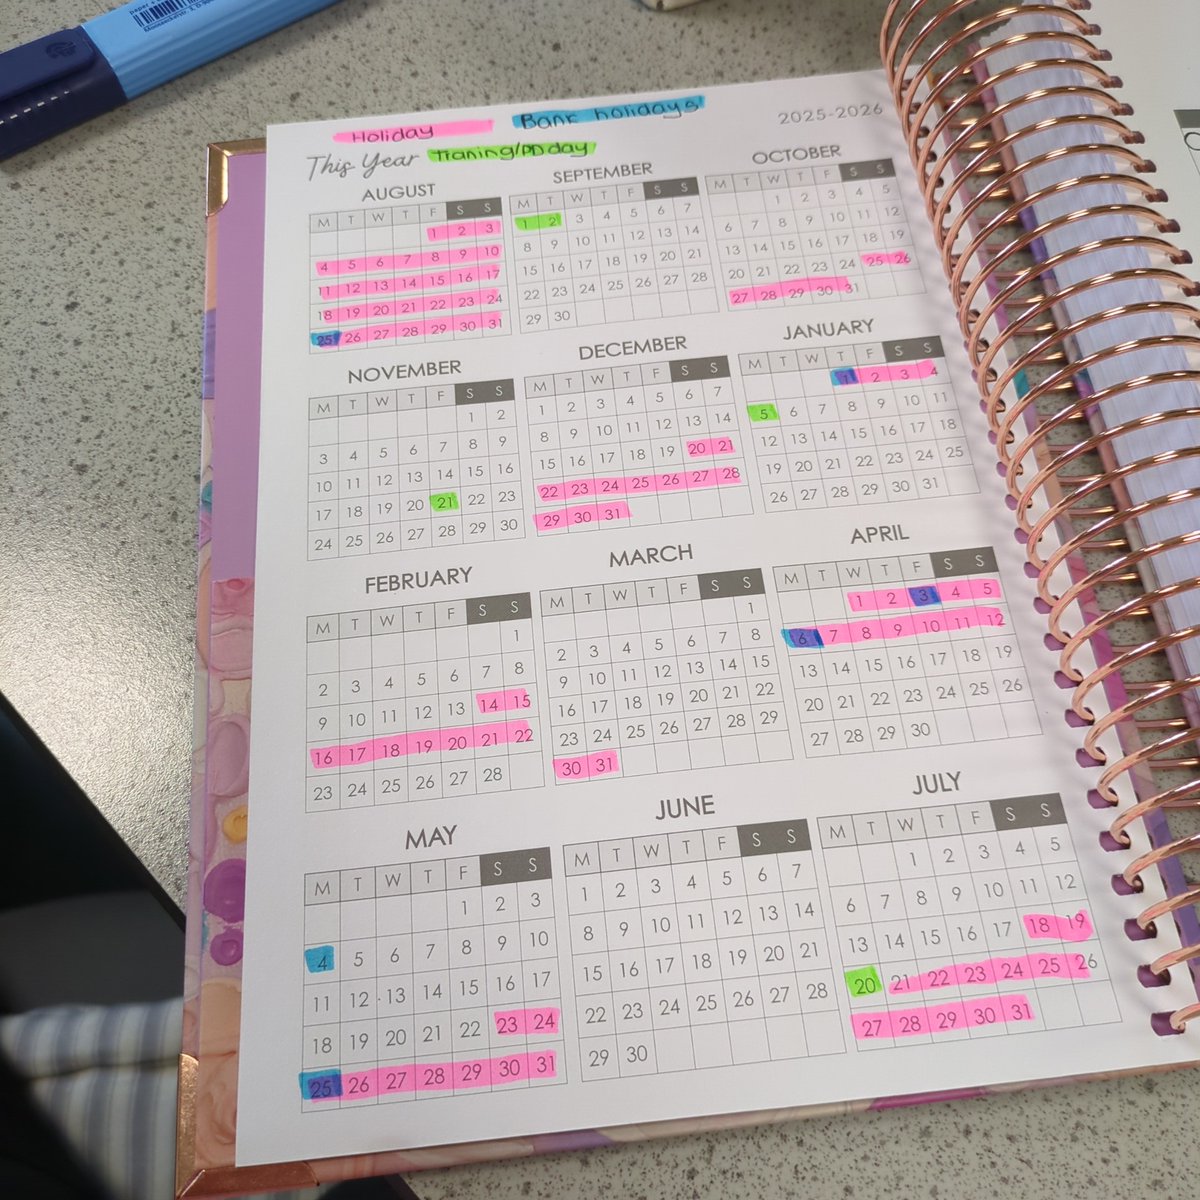 Holiday
Bank holidays
2025-2026
This Year
traning/PD day
AUGUST
M T W T F S S
1 2 3
4 5 6 7 8 9 10
11 12 13 14 15 16 17
18 19 20 21 22 23 24
25 26 27 28 29 30 31
SEPTEMBER
M T W T F S S
1 2 3 4 5 6 7
8 9 10 11 12 13 14
15 16 17 18 19 20 21
22 23 24 25 26 27 28
29 30
OCTOBER
M T W T F S S
1 2 3 4 5
6 7 8 9 10 11 12
13 14 15 16 17 18 19
20 21 22 23 24 25 26
27 28 29 30 31
NOVEMBER
M T W T F S S
1 2
3 4 5 6 7 8 9
10 11 12 13 14 15 16
17 18 19 20 21 22 23
24 25 26 27 28 29 30
DECEMBER
M T W T F S S
1 2 3 4 5 6 7
8 9 10 11 12 13 14
15 16 17 18 19 20 21
22 23 24 25 26 27 28
29 30 31
JANUARY
M T W T F S S
1 2 3 4
5 6 7 8 9 10 11
12 13 14 15 16 17 18
19 20 21 22 23 24 25
26 27 28 29 30 31
FEBRUARY
M T W T F S S
1
2 3 4 5 6 7 8
9 10 11 12 13 14 15
16 17 18 19 20 21 22
23 24 25 26 27 28
MARCH
M T W T F S S
1
2 3 4 5 6 7 8
9 10 11 12 13 14 15
16 17 18 19 20 21 22
23 24 25 26 27 28 29
30 31
APRIL
M T W T F S S
1 2 3 4 5
6 7 8 9 10 11 12
13 14 15 16 17 18 19
20 21 22 23 24 25 26
27 28 29 30
MAY
M T W T F S S
1 2 3
4 5 6 7 8 9 10
11 12 13 14 15 16 17
18 19 20 21 22 23 24
25 26 27 28 29 30 31
JUNE
M T W T F S S
1 2 3 4 5 6 7
8 9 10 11 12 13 14
15 16 17 18 19 20 21
22 23 24 25 26 27 28
29 30
JULY
M T W T F S S
1 2 3 4 5
6 7 8 9 10 11 12
13 14 15 16 17 18 19
20 21 22 23 24 25 26
27 28 29 30 31